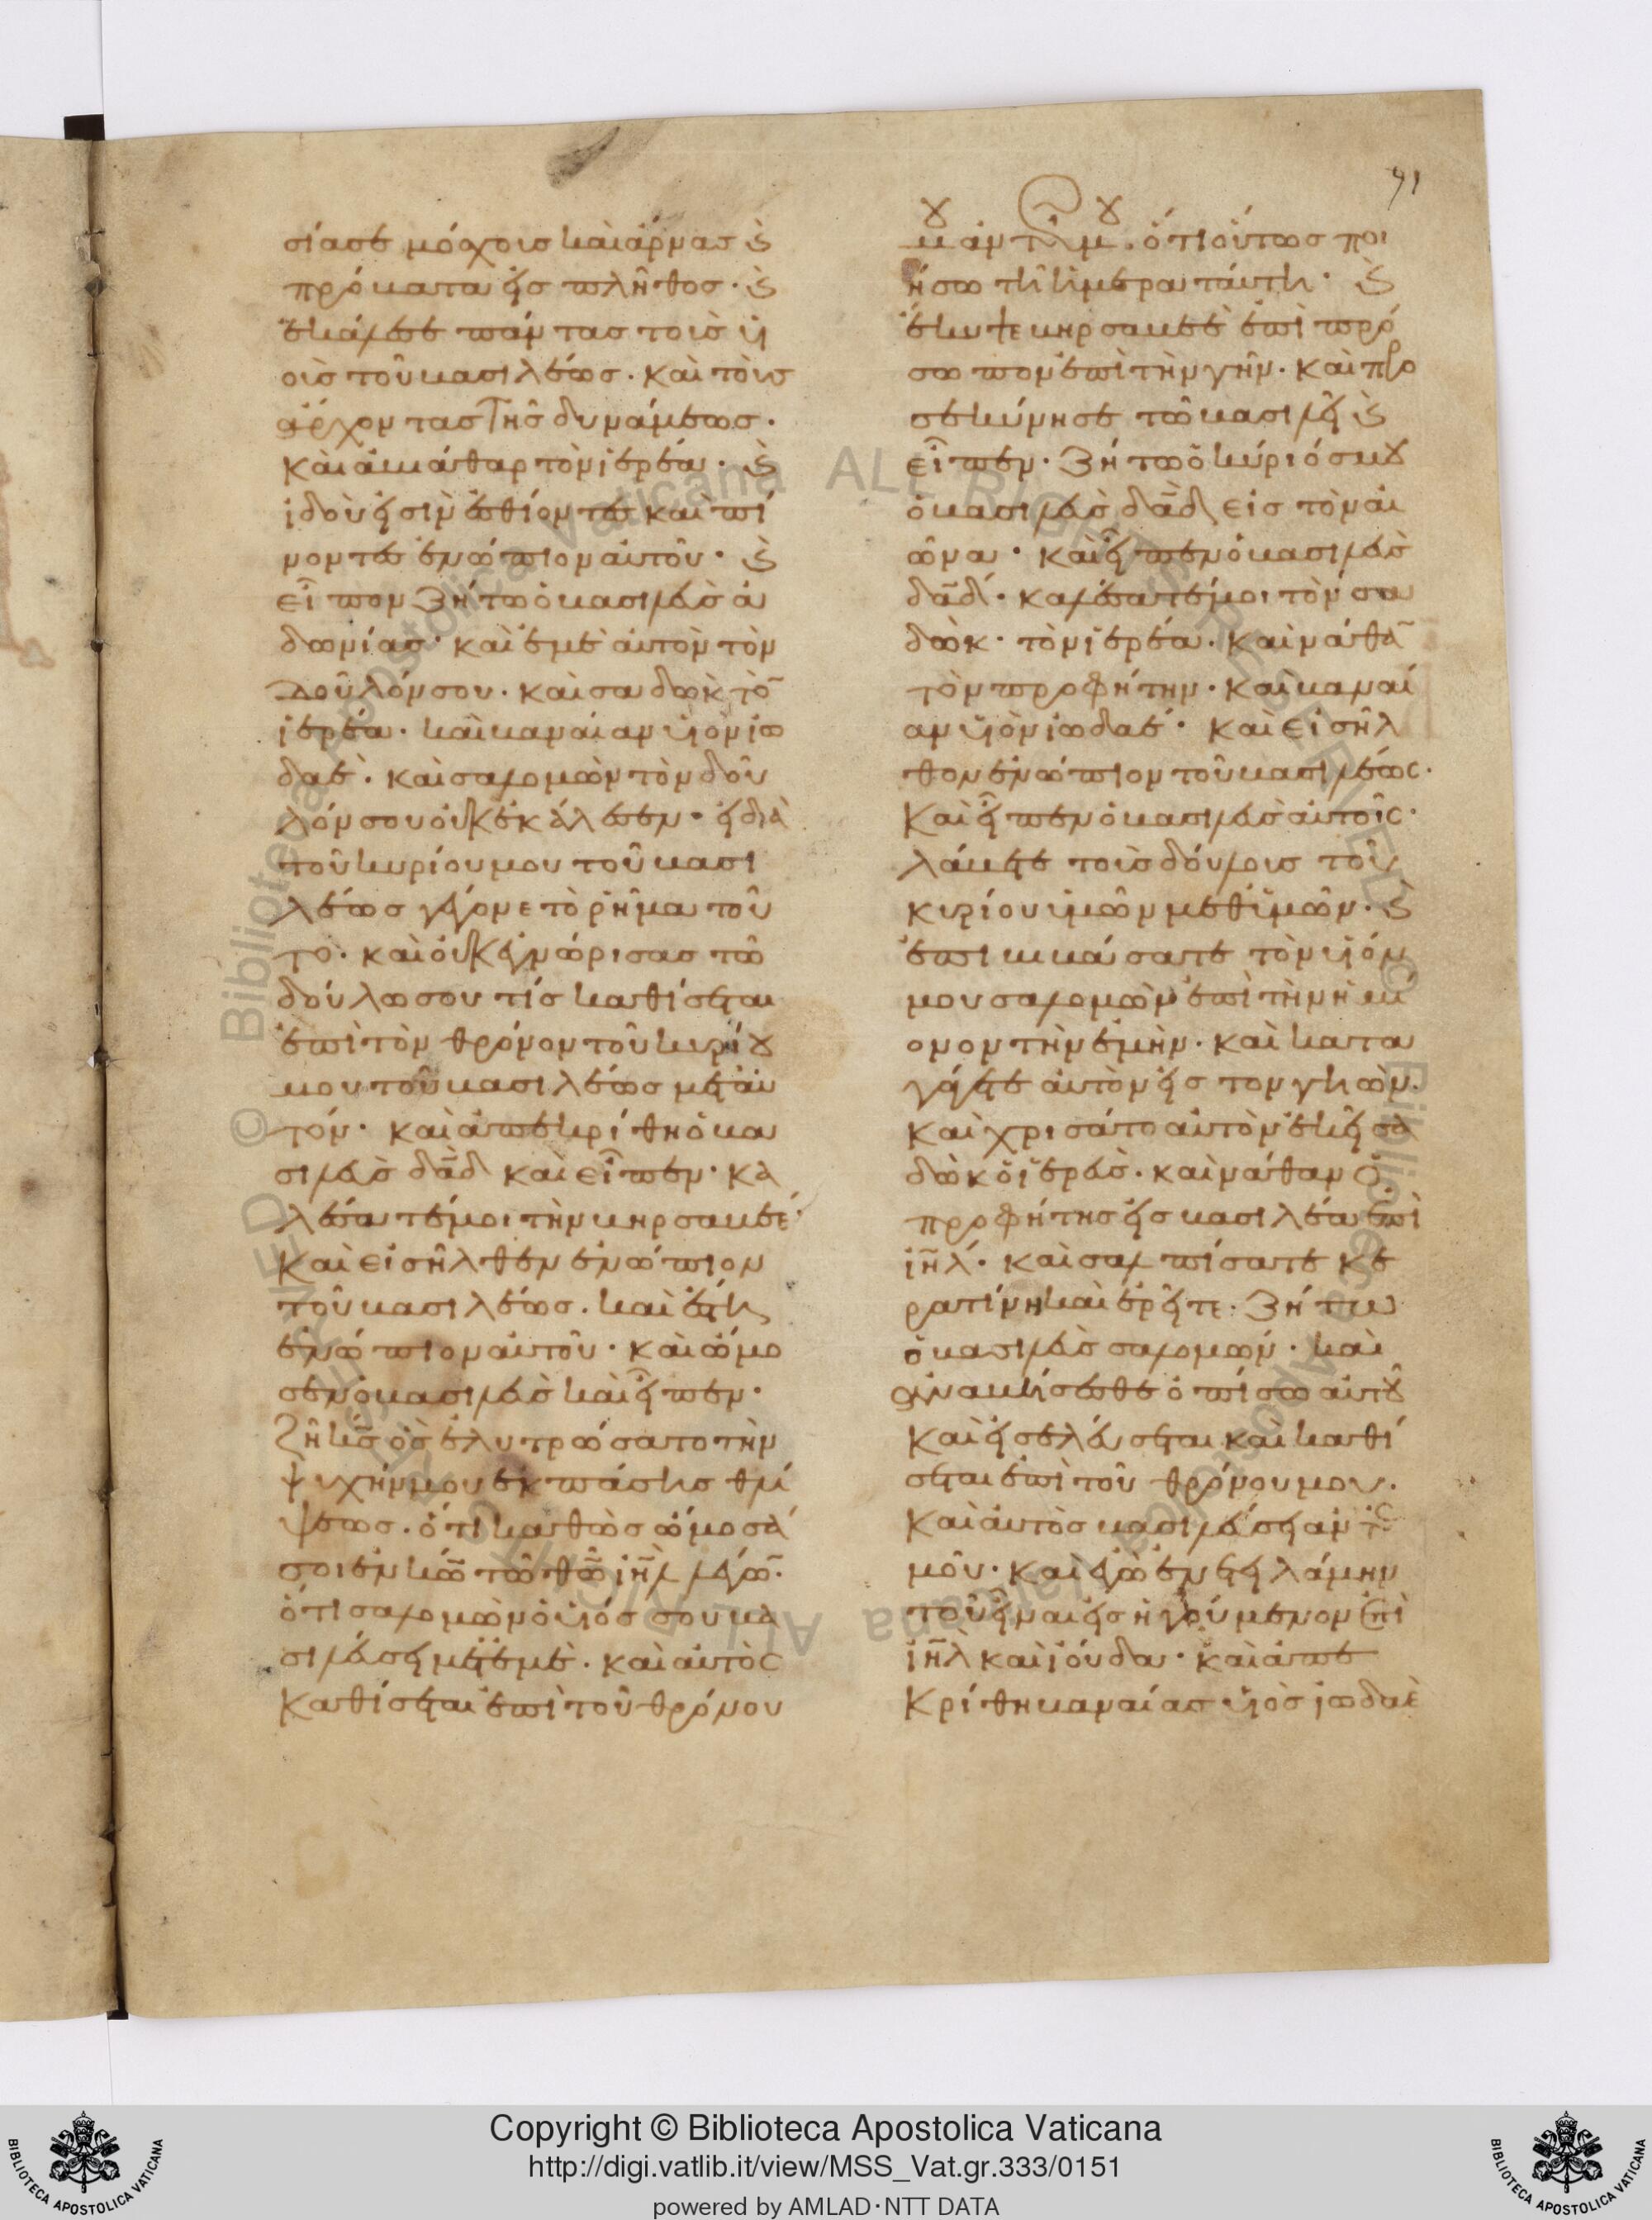 41
σίασε μόχουσ καὶ ἄρνασ κ̀
πρόβατα εἰσ πλῆθοσ· κ̀
ἐκάλεσε πάντασ τοὺσ υἱ
οὺσ τοῦ βασιλέωσ. καὶ τοὺσ
ἄρχοντασ τῆσ δυνάμεωσ·
καὶ ἀβιάθαρ τὸν ἱερέα· κ̀
ἰδοὺ εἰσὶν ἐσθίοντεσ καὶ πί
νοντεσ ἐνώπιον αὐτοῦ· κ̀
εἶπον ζήτω ὁ βασιλεὺσ ἀ
δωνίασ· καὶ ἐμὲ αὐτὸν τὸν
δοῦλόν σου. καὶ σαδὼκ τὸ̄
ἱερέα. καὶ βαναίαν υἱὸν ἰω
δαέ. καὶ σαλομὼν τὸν δοῦ
λόν σου οὐκ ἐκάλεσεν· εἰ διὰ
τοῦ κυρίου μου τοῦ βασι
λέωσ γέγονε τὸ ῥῆμα τοῦ
το. καὶ οὐκ ἐγνώρισασ τῶ
δούλω σου τίσ καθίσεται
ἐπὶ τὸν θρόνον τοῦ κυρίου
μου τοῦ βασιλέωσ μετ' αὐ
τόν· καὶ ἀπεκρίθη ὁ βα
σιλεὺσ δᾱδ καὶ εἶπεν· κα
λέσατέ μοι τὴν βηρσαβεέ·
καὶ εἰσῆλθεν ἐνώπιον
τοῦ βασιλέωσ. καὶ ἔστη
ἐνώπιον αὐτοῦ· καὶ ὤμο
σεν ὁ βασιλεὺσ καὶ εἶπεν·
ζῆ κ̄σ ὃσ ἐλυτρώσατο τὴν
ψυχήν μου ἐκ πάσησ θλί
ψεωσ. ὅτι καθὼσ ὤμοσά
σοι ἐν κ̄ω τῶ θ̄ω ιη̄λ λέγω̄·
ὅτι σαλομὼν ὁ υἱόσ σου βα
σιλεύσει μετ' ἐμέ. καὶ αὐτὸσ
καθίσεται ἐπὶ τοῦ θρόνου
μου ἀντ' ἐμου. ὅτι οὕτωσ ποι
ήσω τῆ ἡμέρα ταύτη· κ̀
ἔκυψε βηρσαβεὲ ἐπὶ πρό
σωπον ἐπὶ τὴν γῆν. καὶ προ
σεκύνησε τῶ βασιλεῖ κ̀
εἶπεν· ζήτω ὁ κύριόσ μου
ὁ βασιλεὺσ δᾱδ εἰσ τὸν αἰ
ῶνα· καὶ εἶπεν ὁ βασιλεὺσ
δᾱδ· καλέσατέ μοι τὸν σα
δὼκ· τὸν ἱερέα. καὶ νάθᾱ
τὸν προφήτην. καὶ βαναί
αν υἱὸν ἰωδαέ· καὶ εἰσῆλ
θον ἐνώπιον τοῦ βασιλέωσ.
καὶ εἶπεν ὁ βασιλεὺσ αὐτοῖσ·
λάβετε τοὺσ δούλουσ τοῦ
κυρίου ὑμῶν μεθ' ὑμῶν. κ̀
ἐπιβιβάσατε τὸν υἱόν
μου σαλομὼν ἐπὶ τὴν ἡμί
ονον τὴν ἐμὴν. καὶ κατα
γάγετε αὐτὸν εἰσ τον γηὼν.
καὶ χρισάτο αὐτὸν ἐκεῖ σα
δὼκ ὁ ἱερεὺσ. καὶ νάθαν ὁ
προφήτησ εἰσ βασιλέα ἐπὶ
ιη̄λ. καὶ σαλπίσατε κε
ρατίνη καὶ ἐρεῖτε. ζήτω
ὁ βασιλεὺσ σαλομών· καὶ
ἀναβήσεσθε ὀπίσω αὐτοῦ
καὶ εἰσελεύσεται καὶ καθί
σεται ἐπὶ τοῦ θρόνου μου.
καὶ αὐτὸσ βασιλεύσει ἀντ' ἐ
μοῦ· καὶ ἐγὼ ἐνετειλάμην
τοῦ εἶναι εἰσ ἡγούμενον ἐπὶ
ιη̄λ καὶ ἰούδα· καὶ ἀπε
κρίθη βαναίασ υἱὸσ ἰωδαὲ
© Biblioteca Apostolica Vaticana ALL RIGHTS RESERVED
Copyright © Biblioteca Apostolica Vaticana
http://digi.vatlib.it/view/MSS_Vat.gr.333/0151
powered by AMLAD·NTT DATA
BIBLIOTECA APOSTOLICA VATICANA
BIBLIOTECA APOSTOLICA VATICANA